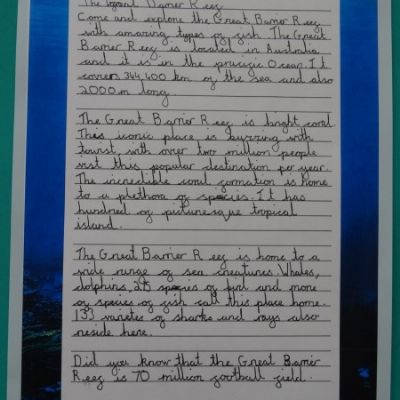 The Great Barrier Reef
Come and explore the Great Barrier Reef
with amazing types of fish. The Great
Barrier Reef is located in Australia
and it is in the pacific Ocean. It
covers 344,400 km of the sea and also
2000m long.
The Great Barrier Reef is bright coral
This iconic place is buzzing with
tourist, with over two million people
visit this popular destination per year.
The incredible coral formation is home
to a plethora of species. It has
hundred of picturesque tropical
island.
The Great Barrier Reef is home to a
wide range of sea creatures. Whales,
dolphins, 215 species of bird and more
of species of fish call this place home.
133 varieties of sharks and rays also
reside here.
Did you know that the Great Barrier
Reef is 70 million football field.